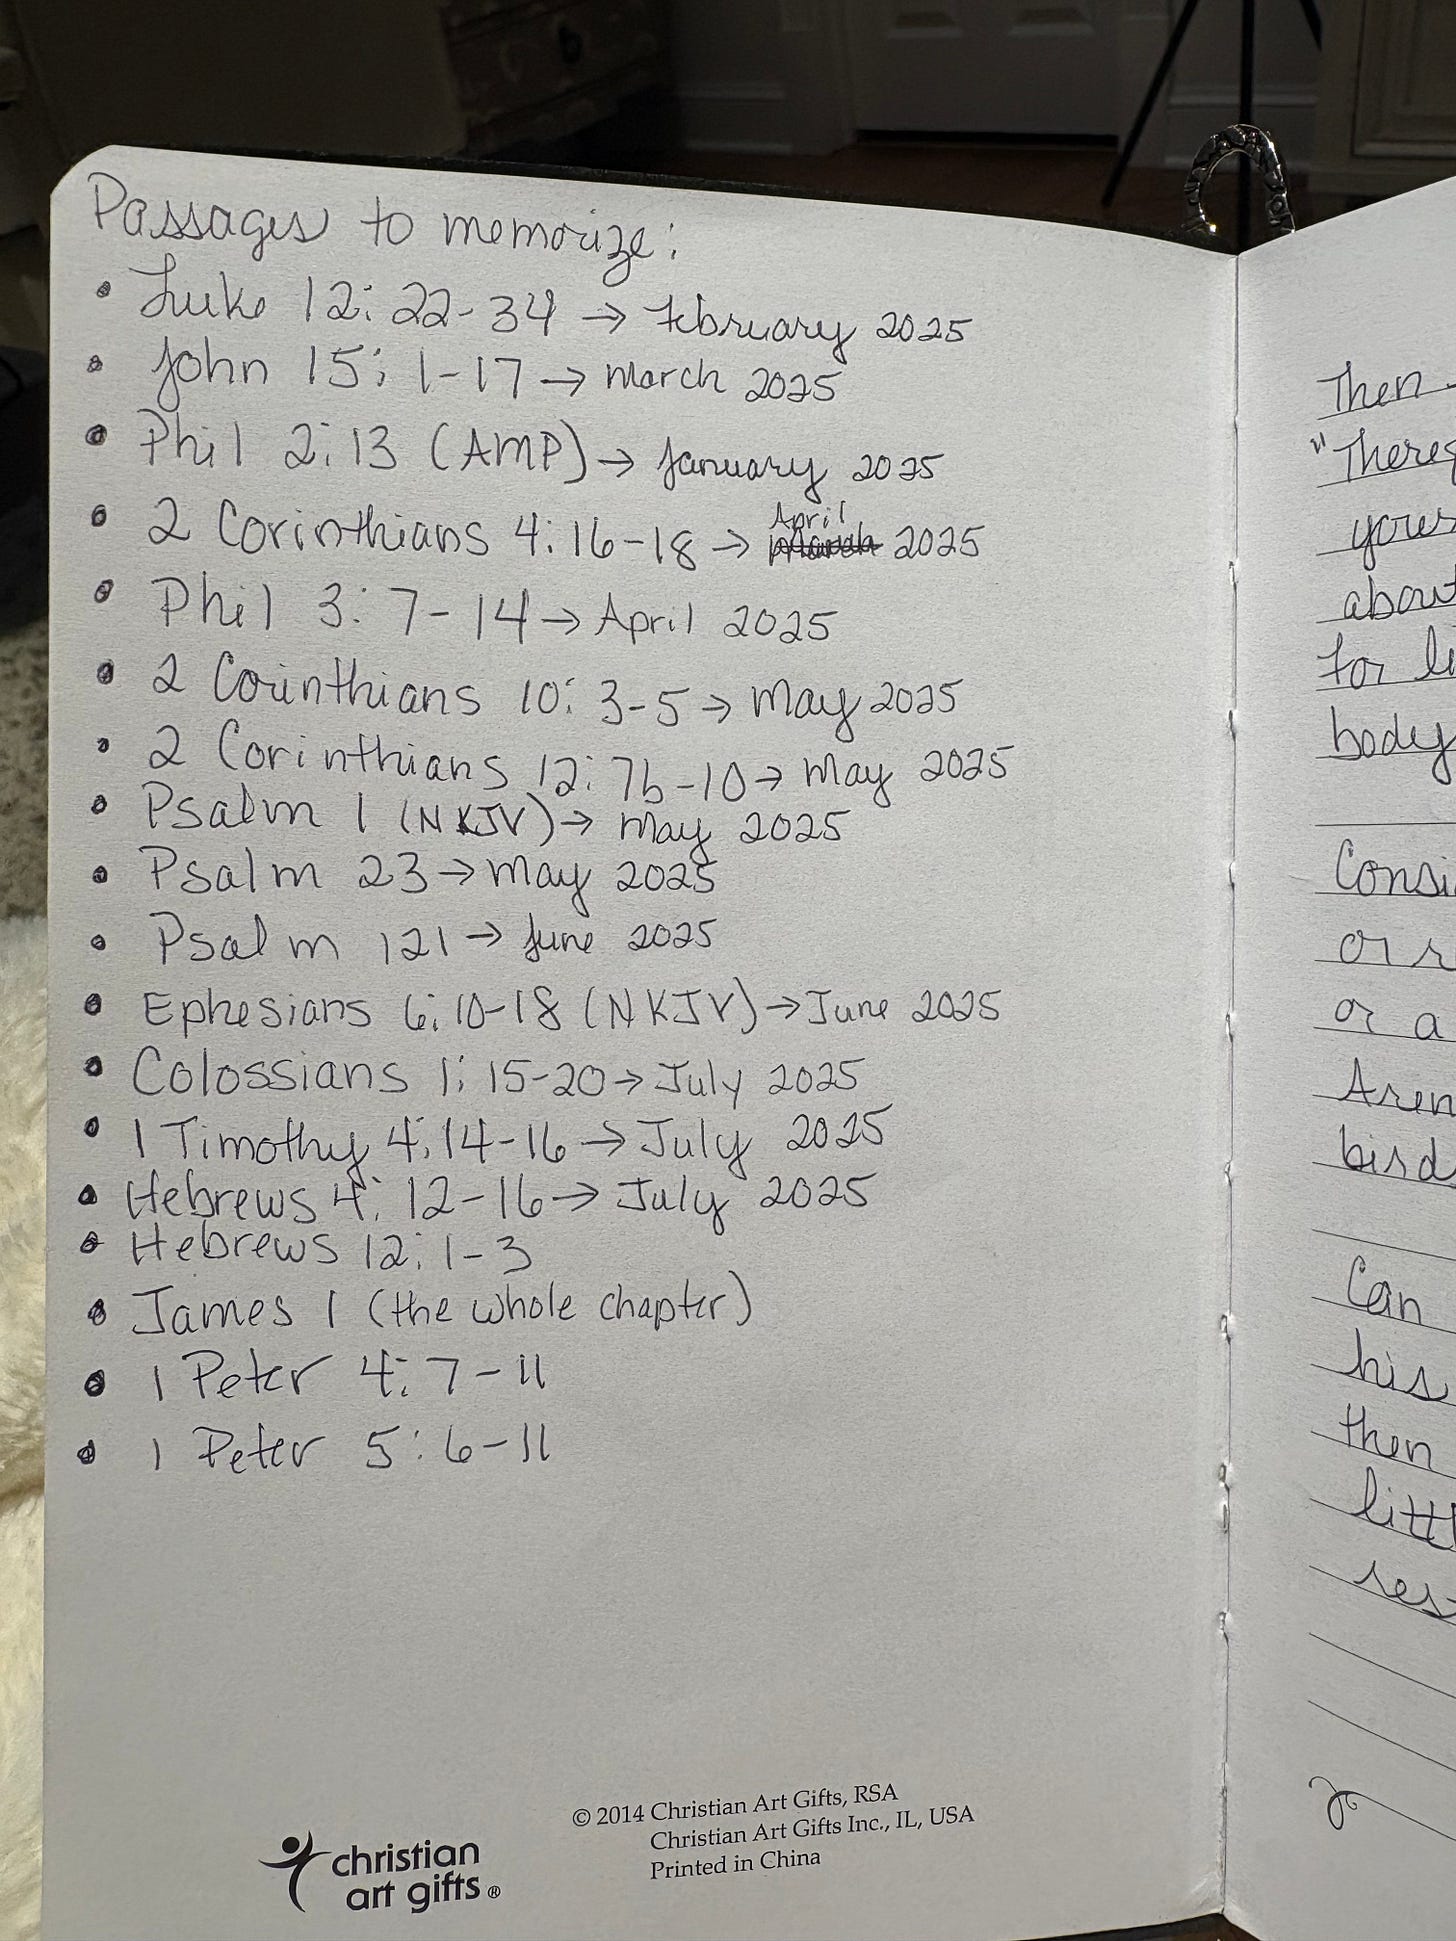 Passages to memorize:
• Luke 12: 22-34 → February 2025
• John 15: 1-17 → March 2025
• Phil 2:13 (AMP) → January 2025
• 2 Corinthians 4:16-18 → April 2025
• Phil 3: 7-14 → April 2025
• 2 Corinthians 10: 3-5 → May 2025
• 2 Corinthians 12: 7b-10 → May 2025
• Psalm 1 (NKJV) → May 2025
• Psalm 23 → May 2025
• Psalm 121 → June 2025
• Ephesians 6:10-18 (NKJV) → June 2025
• Colossians 1: 15-20 → July 2025
• 1 Timothy 4:14-16 → July 2025
• Hebrews 4: 12-16 → July 2025
• Hebrews 12: 1-3
• James 1 (the whole chapter)
• 1 Peter 4: 7-11
• 1 Peter 5: 6-11
© 2014 Christian Art Gifts, RSA
Christian Art Gifts Inc., IL, USA
Printed in China
christian
art gifts®
Then
"There
your
about
for li
body
Consi
or
or a
Aren
birds
Can
his
then
littl
res